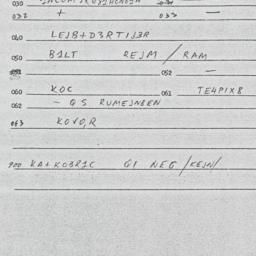 030
032 + 033 —
040 LEJB+D3RTIJ3R
050 B1LT REJM / RAM
052 —
060 KOC 061 TE4PIX8
062 – QS RUMEJNBEN
063 KOVO,R
900 KA+KOBR1C GI NEG /KEJN/